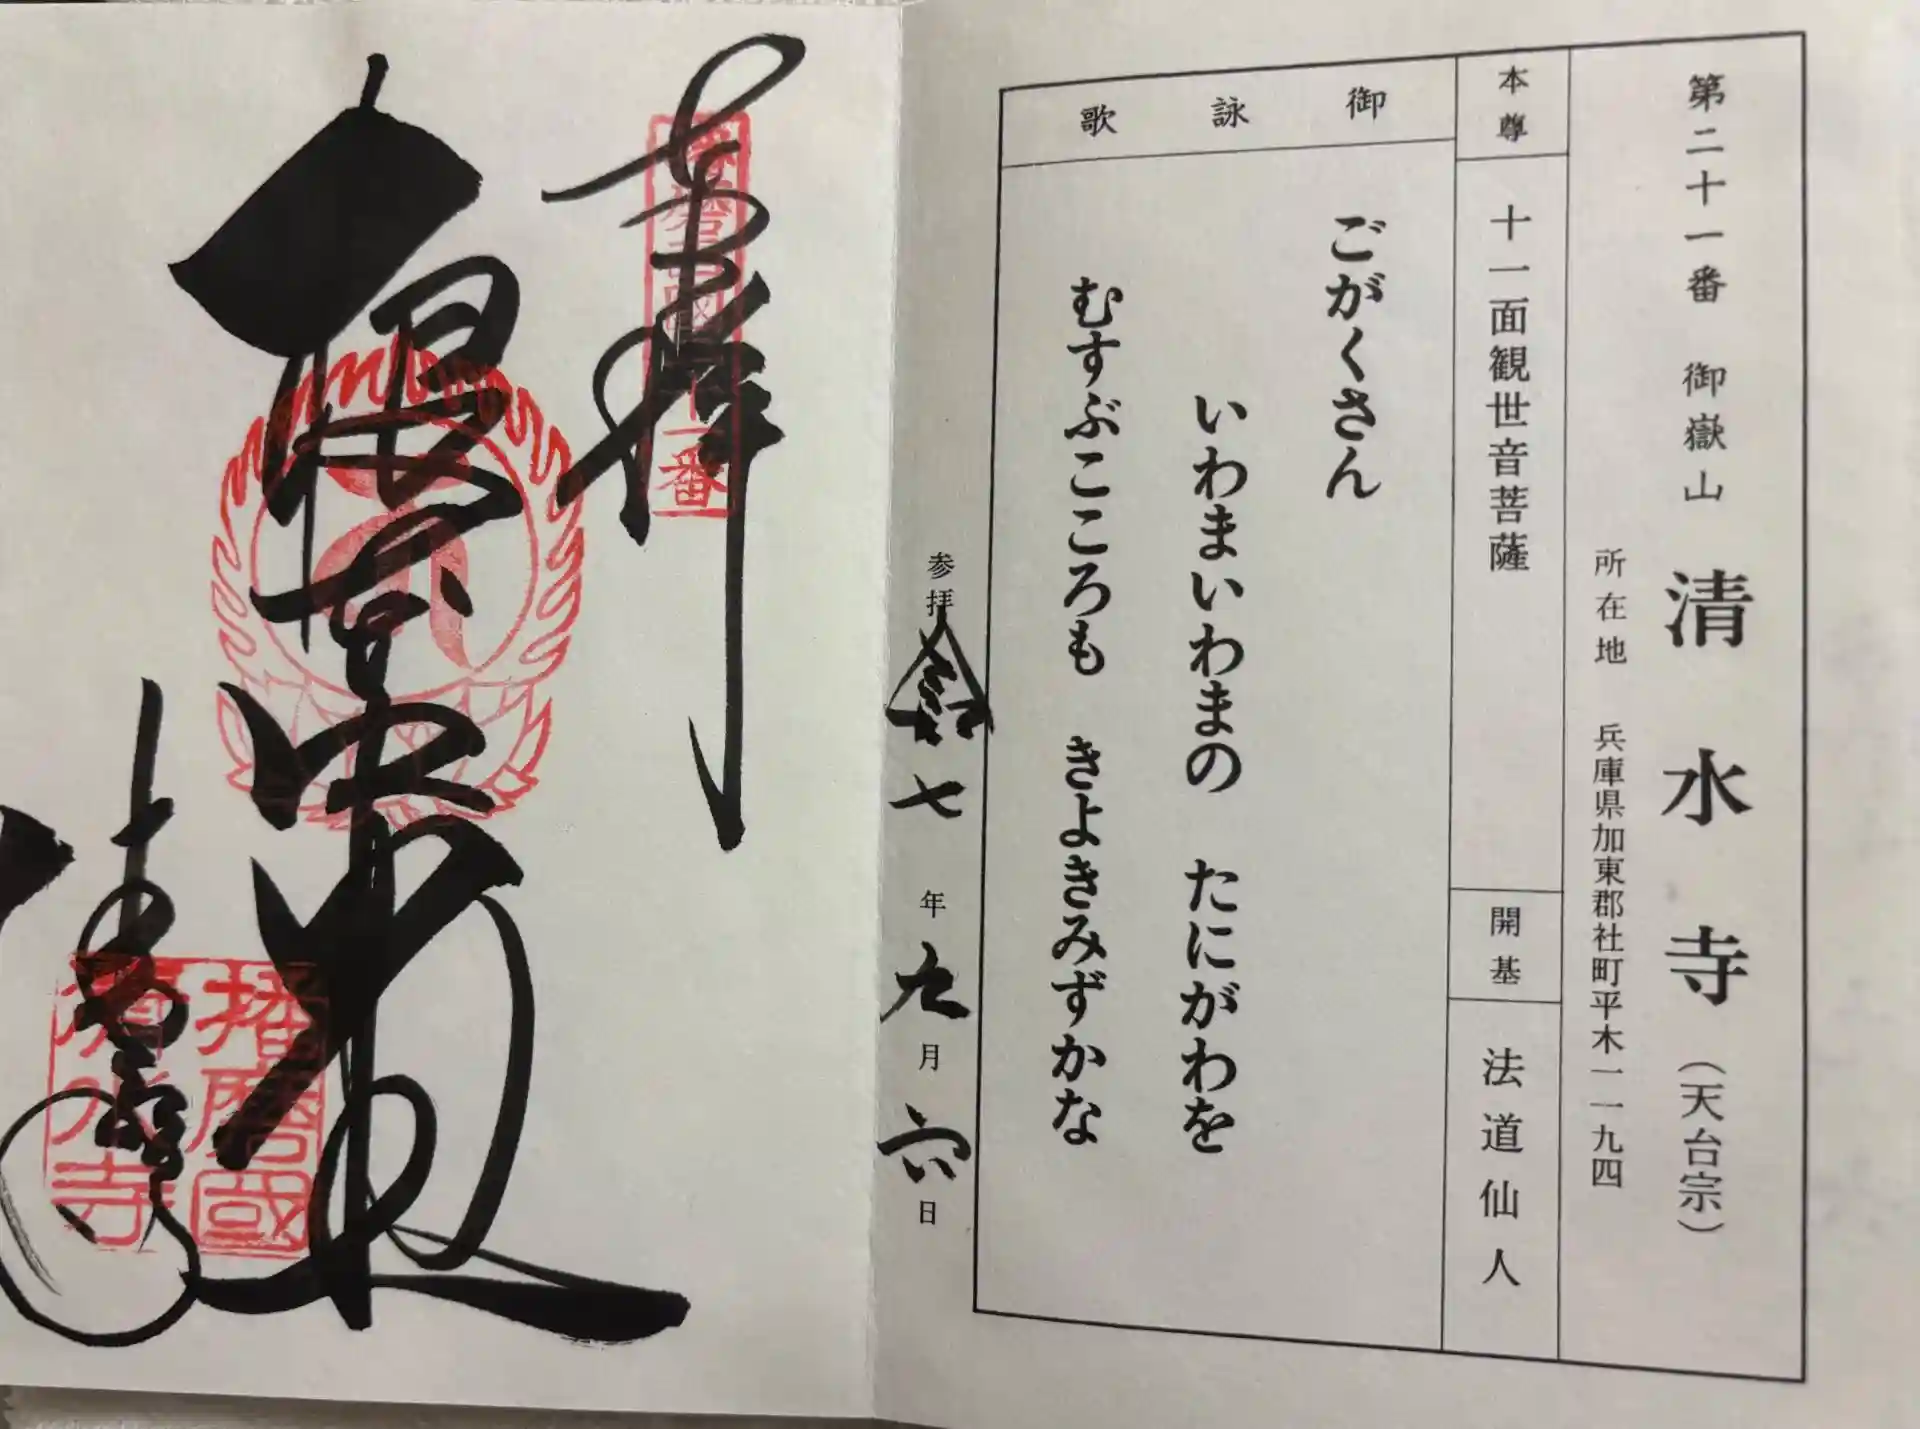 第二十一番 御嶽山 清水寺(天台宗)
所在地 兵庫県加東郡社町平木一一九四
本尊 十一面観世音菩薩
開基 法道仙人
御詠歌
ごがくさん
いわまいわまの たにがわを
むすぶこころも きよきみずかな
参拝 令和七年九月六日
奉拝
清水寺
播磨國
清水寺